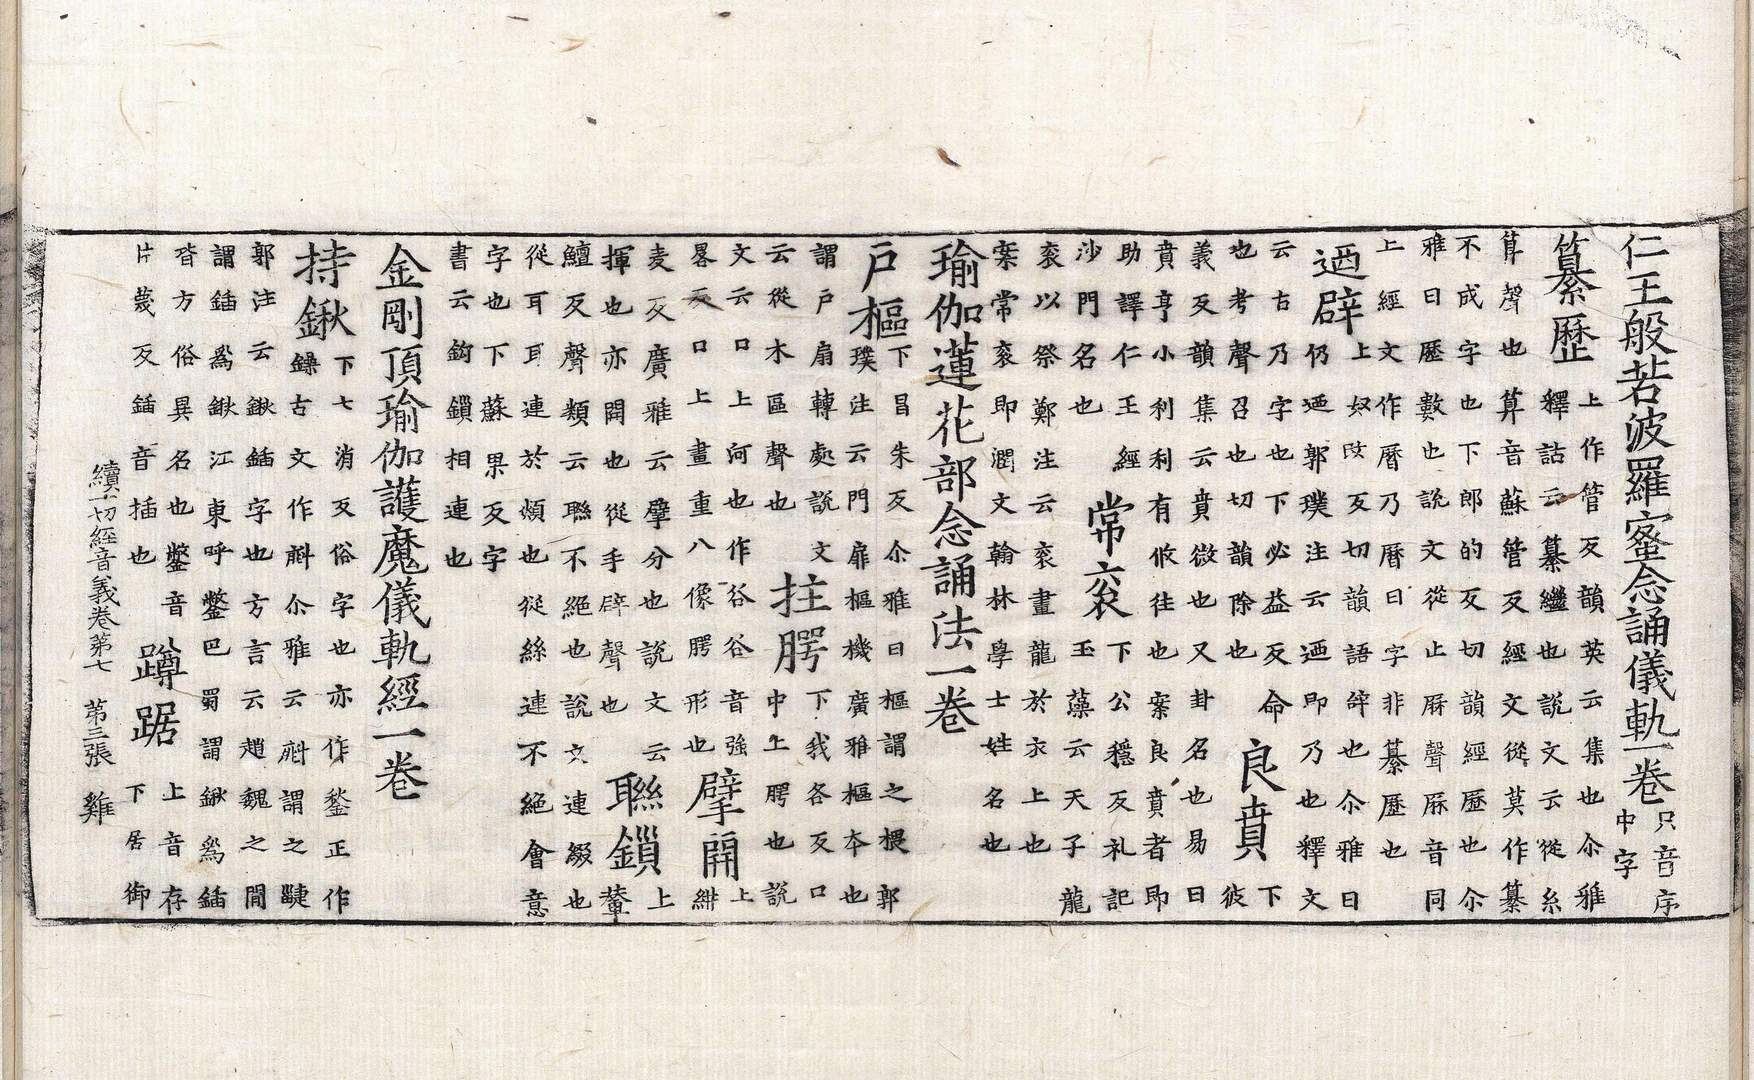 仁王般若波羅蜜念誦儀軌一卷 只音序
中字
纂歷 上作管反韻英云集也尒雅
釋詁云纂繼也說文云從糸
算聲也算音蘇管反經文從莫作纂
不成字也下郎的反切韻經歷也尒
雅曰歷數也說文從止厤聲厤音同
上經文作曆乃曆日字非纂歷也
迺辟 上奴改反切韻語辝也尒雅曰
仍迺郭璞注云迺即乃也釋文
云古乃字也下必益反命
也考聲召也切韻除也
良賁 下
彼
義反韻集云賁微也又卦名也易曰
賁亨小利利有攸往也案良賁者即
助譯仁王經
沙門名也
常袞 下公穩反礼記
玉藻云天子龍
袞以祭鄭注云袞畫龍於衣上也
案常袞即潤文翰林學士姓名也
瑜伽蓮花部念誦法一卷
戶樞 下昌朱反尒雅曰樞謂之椳郭
璞注云門扉樞機廣雅樞本也
謂戶扇轉處說文
云從木區聲也
拄腭 下我各反口
中上腭也說
文云口上河也作谷谷音強
畧反口上畫重八像腭形也
擘開 上
絣
麦反廣雅云擘分也說文云
揮也亦開也從手辟聲也
聯鎖 上
輦
鱣反聲類云聯不絕也說文連綴也
從耳耳連於頰也從絲連不絕會意
字也下蘇果反字
書云鉤鎖相連也
金剛頂瑜伽護魔儀軌經一卷
持鍬 下七消反俗字也亦作鍫正作
鐰古文作𣂁尒雅云𣂁謂之疀
郭注云鍬鍤字也方言云趙魏之間
謂鍤爲鍬江東呼鐅巴蜀謂鍬爲鍤
沓方俗異名也鐅音
片蔑反鍤音插也
蹲踞 上音存
下居御
續一切經音義卷第七 第三張 雞